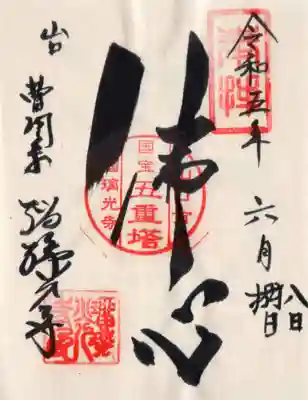 令和五年 六月 八日
佛心
国宝
五重塔
瑠璃光寺
山口 曹洞宗 瑠璃光寺